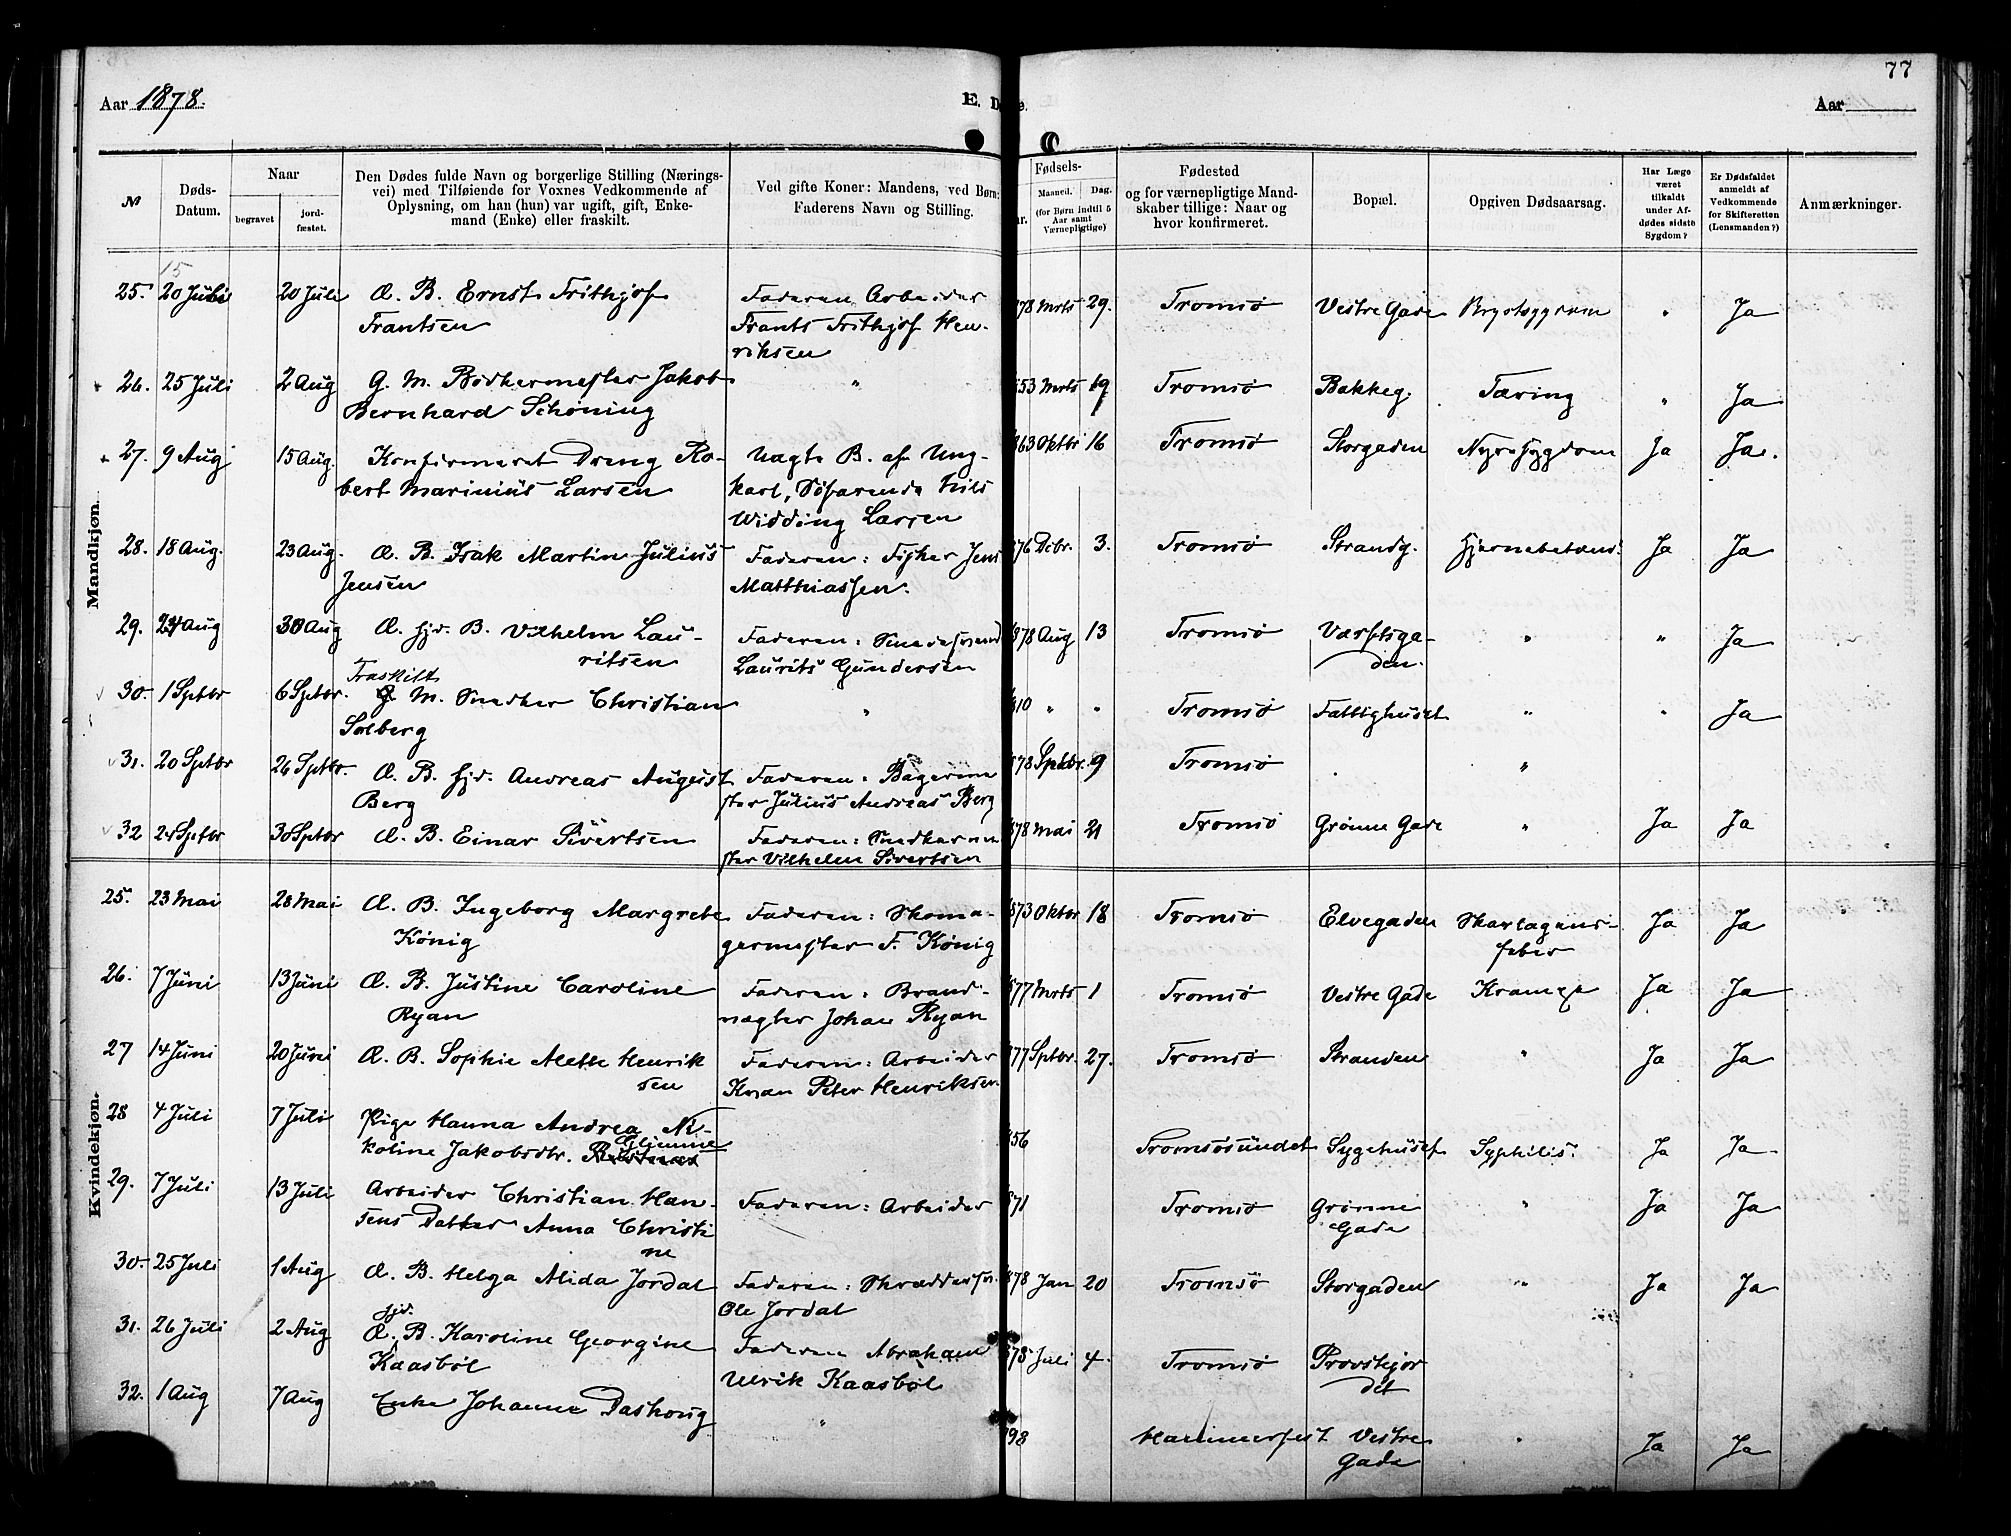 77
Aar 1878.
E. D e.
Aar
№
Døds-
Datum.
Naar
begravet
jord-
fæstet.
Den Dødes fulde Navn og borgerlige Stilling (Nærings-
vei) med Tilføiende for Voxnes Vedkommende af
Oplysning, om han (hun) var ugift, gift, Enke-
mand (Enke) eller fraskilt.
Ved gifte Koner: Mandens, ved Børn:
Faderens Navn og Stilling.
Fødsels-
ar.
Maaned.
Dag.
(for Børn indtil 5
Aar samt
Værnepligtige)
Fødested
og for værnepligtige Mand-
skaber tillige: Naar og
hvor konfirmeret.
Bopæl.
Opgiven Dødsaarsag.
Har Læge
været
tilkaldt
under Af-
dødes sidste
Sygdom?
Er Dødsfaldet
anmeldt af
Vedkommende
for Skifteretten
(Lensmanden?)
Anmærkninger.
Mandkjøn.
15
25. 20 Juli 20 Juli Æ. B. Ernst Frithjof Faderen, Arbeider 878 Mrts 29. Tromsö Vestre Gade Ja
Frantsen Frants Frithjof Hen-
riksen
26. 25 Juli 2 Aug G. M. Bödkermester Jakob " 853 Mrts 19 Tromsö Bakkeg. Tæring " Ja
Bernhard Schöning
27. 9 Aug 15 Aug. Konfirmeret Dreng Ro- Uægte B. af Ung- 863 Oktbr 16 Tromsö Storgaden Nyresygdom Ja Ja.
bert Marinius Larsen karl, Söfarende Nils
Widding Larsen
28. 18 Aug. 23 Aug. Æ. B. Isak Martin Julius Faderen: Fisker Jens 876 Dcbr. 3. Tromsö Strandg. Hjernebetænd. Ja Ja
Jensen Matthiassen.
29. 24 Aug 30 Aug Æ. hjd. B. Vilhelm Lau- Faderen: Smedesvend 878 Aug 13 Tromsö Værftsga- " " Ja
ritsen Laurits Gundersen den.
Fraskilt
30. 1 Sptbr 6 Sptbr. M. Snedker Christian " 810 " " Tromsö Fattighuset " " Ja
Solberg
31. 20 Sptbr 26 Sptbr. Æ. B. hjd. Andreas August Faderen: Bagerme 878 Sptbr. 9 Tromsö "
Berg ster Julius Andreas Berg
32 24 Sptbr 30 Sptbr Æ. B. Einar Sivertsen Faderen: Snedkerme 878 Mai 21 Tromsö Grönne Gade " Ja Ja
ster Vilhelm Sivertsen
Kvindekjøn.
25. 23 Mai 28 Mai Æ. B. Ingeborg Margrete Faderen: Skoma- 873 Oktbr 18 Tromsö Elvegaden Skarlagens- Ja Ja
König germester F. König feber
26. 7 Juni 13 Juni Æ. B. Justine Caroline Faderen: Brand- 877 Mrts 1 Tromsö Vestre Gade Krampe Ja Ja
Ryan vagter Johan Ryan
27 14 Juni 20 Juni Æ. B. Sophie Alette Henrik Faderen: Arbeider 877 Sptbr. 27. Tromsö Stranden " Ja Ja
sen Peter Henriksen
28 4 Juli 7 Juli Pige Hanna Andrea Ni- 856 Tromsösundet Sygehuset Syphilis. Ja Ja
koline Jakobsdtr.
29. 7 Juli 13 Juli Arbeider Christian Han- Faderen: Arbeider 871 Tromsö Grönne " Ja Ja
sens Datter Anna Christi Gade
ne
30. 25 Juli 1 Aug Æ. B. Helga Alida Jordal Faderen: Skræddersv. 878 Jan 20 Tromsö Storgaden " Ja Ja
Ole Jordal
hjd.
31. 26 Juli 2 Aug Æ. B. Karoline Georgine Faderen Abraham 878 Juli 4. Tromsö Provstejor
Kaasböl Ulrik Kaasböl det
32. 1 Aug 7 Aug Enke Johanne " 98 Hammerfest Vestre " Ja Ja
Gade